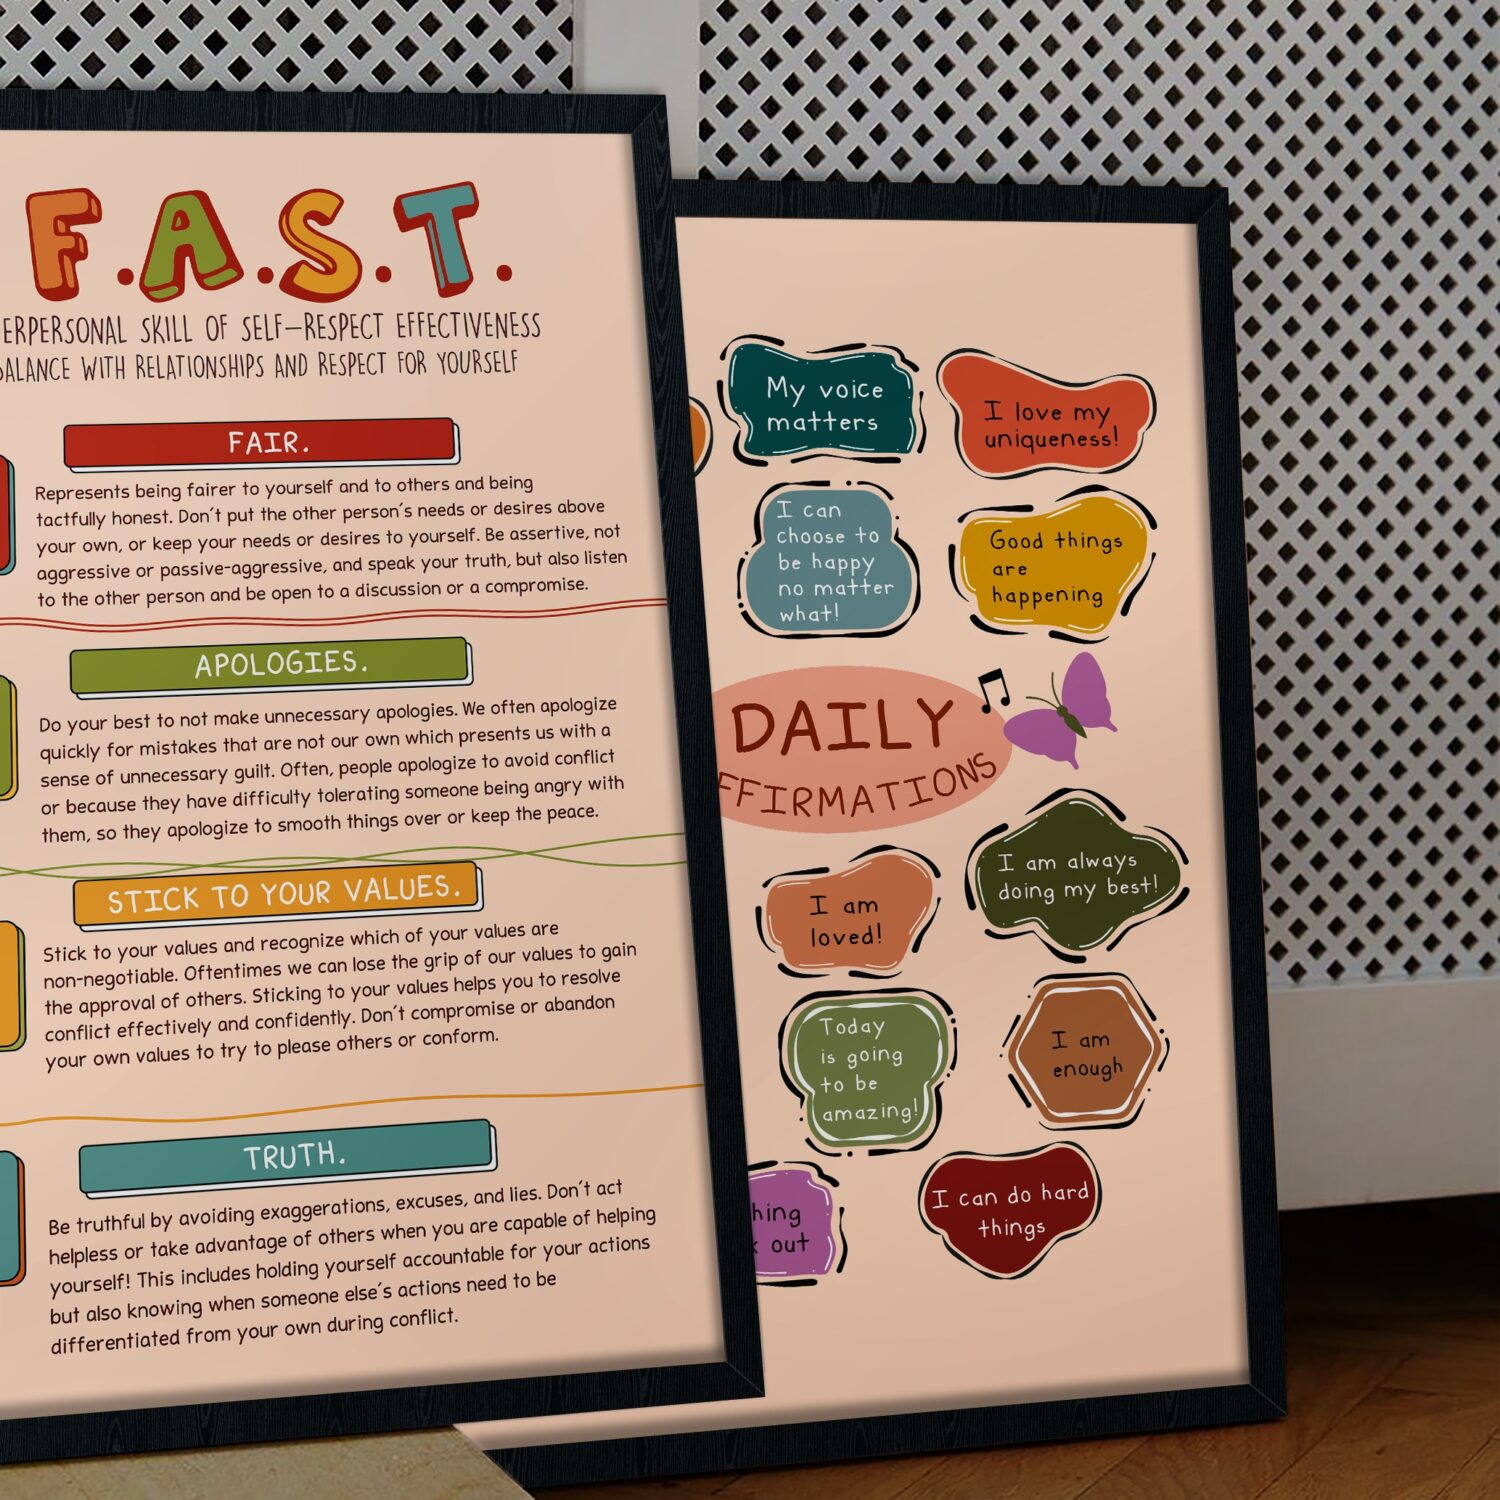 F.A.S.T.
ERPERSONAL SKILL OF SELF-RESPECT EFFECTIVENESS
BALANCE WITH RELATIONSHIPS AND RESPECT FOR YOURSELF
FAIR.
Represents being fairer to yourself and to others and being
tactfully honest. Don't put the other person's needs or desires above
your own, or keep your needs or desires to yourself. Be assertive, not
aggressive or passive-aggressive, and speak your truth, but also listen
to the other person and be open to a discussion or a compromise.
APOLOGIES.
Do your best to not make unnecessary apologies. We often apologize
quickly for mistakes that are not our own which presents us with a
sense of unnecessary guilt. Often, people apologize to avoid conflict
or because they have difficulty tolerating someone being angry with
them, so they apologize to smooth things over or keep the peace.
STICK TO YOUR VALUES.
Stick to your values and recognize which of your values are
non-negotiable. Oftentimes we can lose the grip of our values to gain
the approval of others. Sticking to your values helps you to resolve
conflict effectively and confidently. Don't compromise or abandon
your own values to try to please others or conform.
TRUTH.
Be truthful by avoiding exaggerations, excuses, and lies. Don't act
helpless or take advantage of others when you are capable of helping
yourself! This includes holding yourself accountable for your actions
but also knowing when someone else's actions need to be
differentiated from your own during conflict.
My voice
matters
I love my
uniqueness!
I can
choose to
be happy
no matter
what!
Good things
are
happening
DAILY
FFIRMATIONS
I am always
doing my best!
I am
loved!
Today
is going
to be
amazing!
I am
enough
hing
out
I can do hard
things